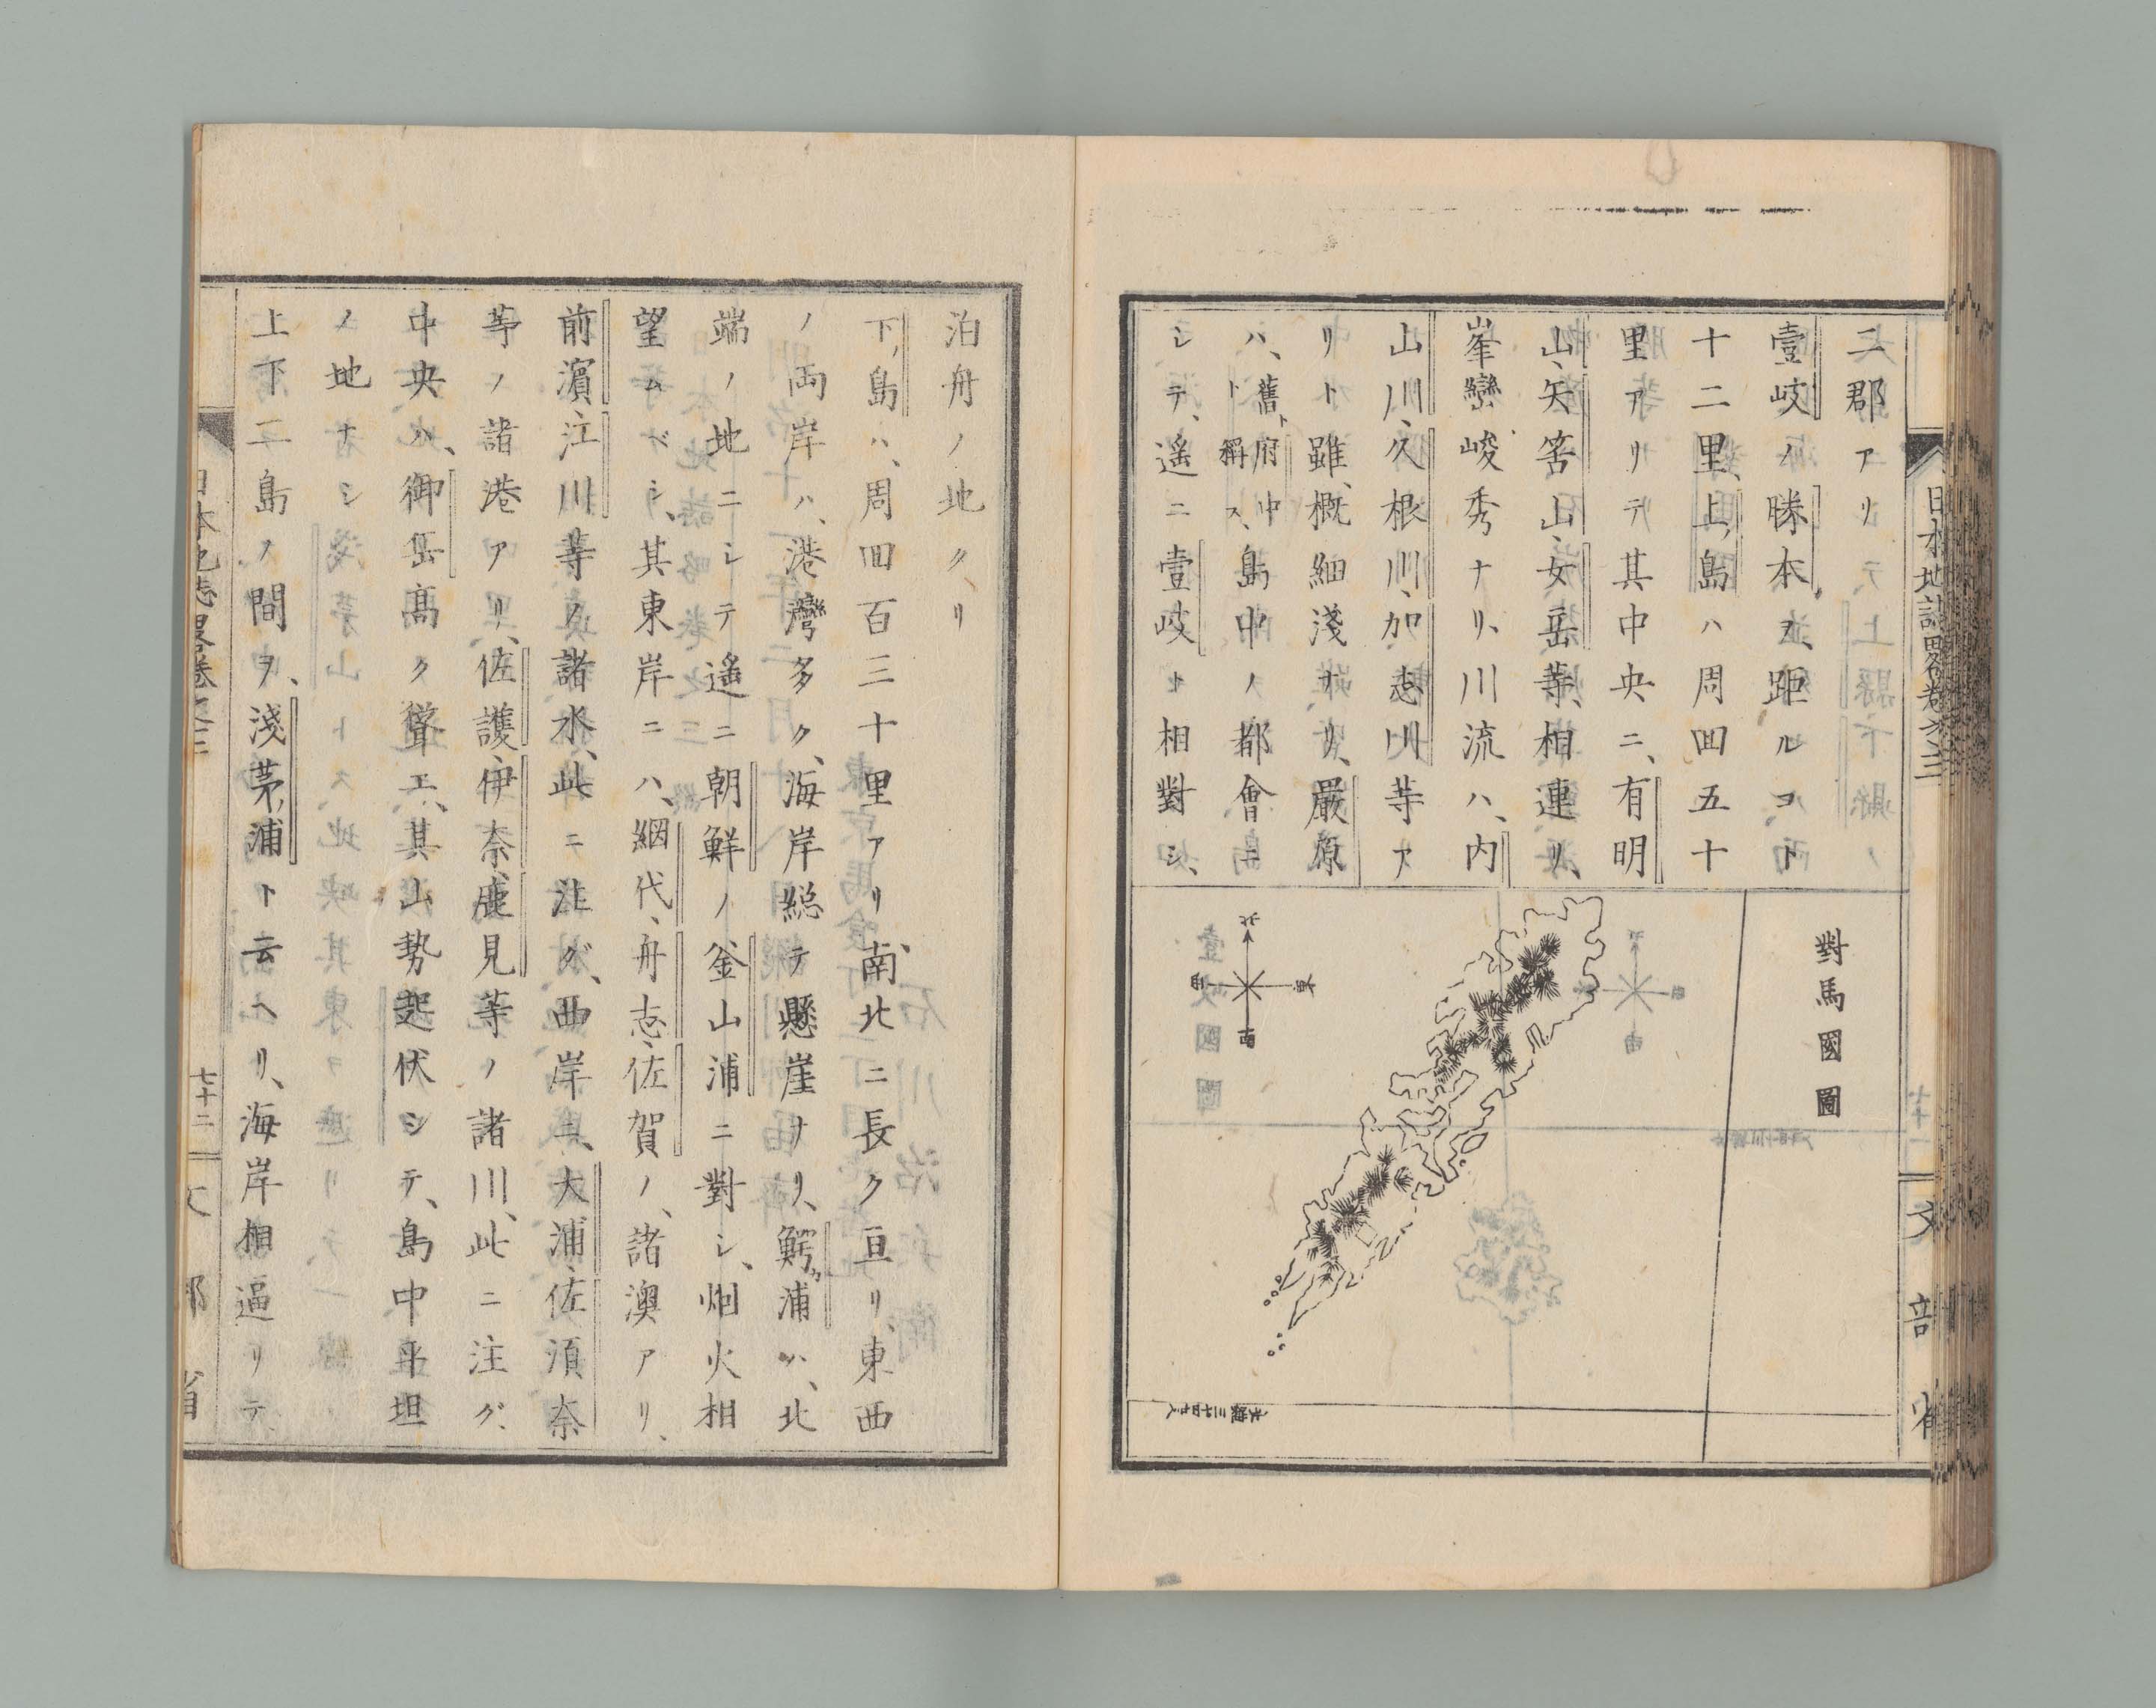 日本地誌畧卷之三
二郡アリ
壹岐ノ勝本ヲ、距ルコト
十二里、上ノ島ハ周囬五十
里アリテ其中央ニ、有明
山、矢筈山、女岳等、相連リ、
峯巒峻秀ナリ、川流ハ、内
山川、久根川、加志川等ア
リト雖、概細淺ナリ、嚴原
ハ、舊ト府中
ト稱ス、島中ノ都會ニ
シテ、遥ニ壹岐ト相對シ、
對馬國圖
北
東
西
南
文部省
泊舟ノ地クリ
下ノ島ハ、周囬百三十里アリ、南北ニ長ク亘リ、東西
ノ両岸ハ、港灣多ク、海岸総テ懸崖ナリ、鰐ノ浦ハ、北
端ノ地ニシテ遥ニ朝鮮ノ釜山浦ニ對シ、烟火相
望ムベシ、其東岸ニハ、網代、舟志、佐賀ノ、諸澳アリ、
前濵、江川等ノ諸水、此ニ注グ、西岸ニ、大浦、佐須奈
等ノ諸港アリ、佐護、伊奈、鹿見等ノ諸川、此ニ注グ、
中央ハ、御岳高ク聳エ、其山勢起伏シテ、島中平坦
ノ地ナシ
上下二島ノ間ヲ、淺茅ノ浦ト云ヘリ、海岸相逼リテ、
日本地誌畧卷之三
七十二
文部省